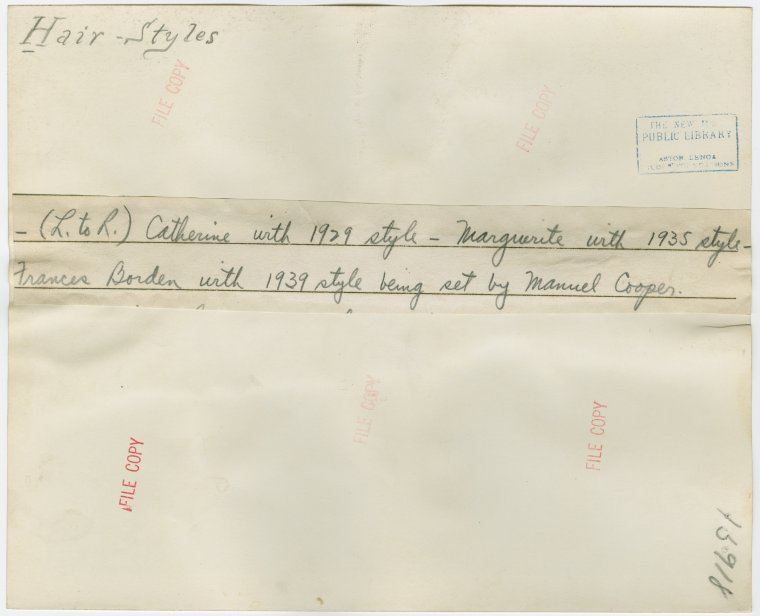 Hair-Styles
FILE COPY
FILE COPY
THE NEW
PUBLIC LIBRARY
ASTOR LENOX
- (L. to R.) Catherine with 1929 style - Marguerite with 1935 style -
Frances Borden with 1939 style being set by Manuel Cooper.
FILE COPY
FILE COPY
FILE COPY